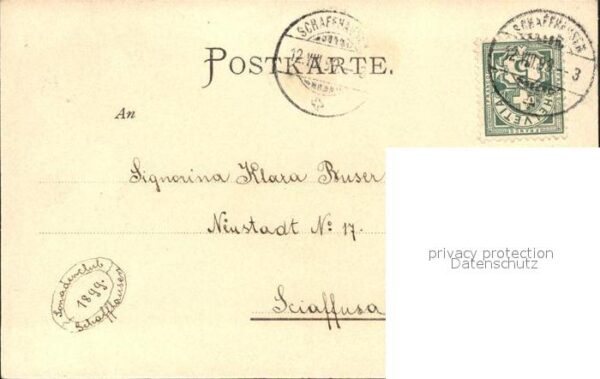 SCHAFFHAUSEN
12.VIII.99
POSTKARTE.
SCHAFFHAUSEN
12.VIII.99.-3
HELVETIA
FRANCO
An
Signorina Klara Buser
Neustadt No 17.
Sciaffusa
1899.
Schaffhausen
privacy protection
Datenschutz